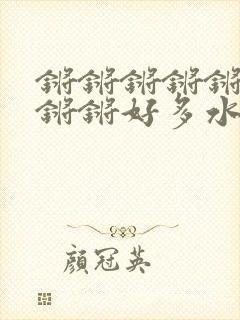 锵锵锵锵锵
锵锵好多水
顏冠英